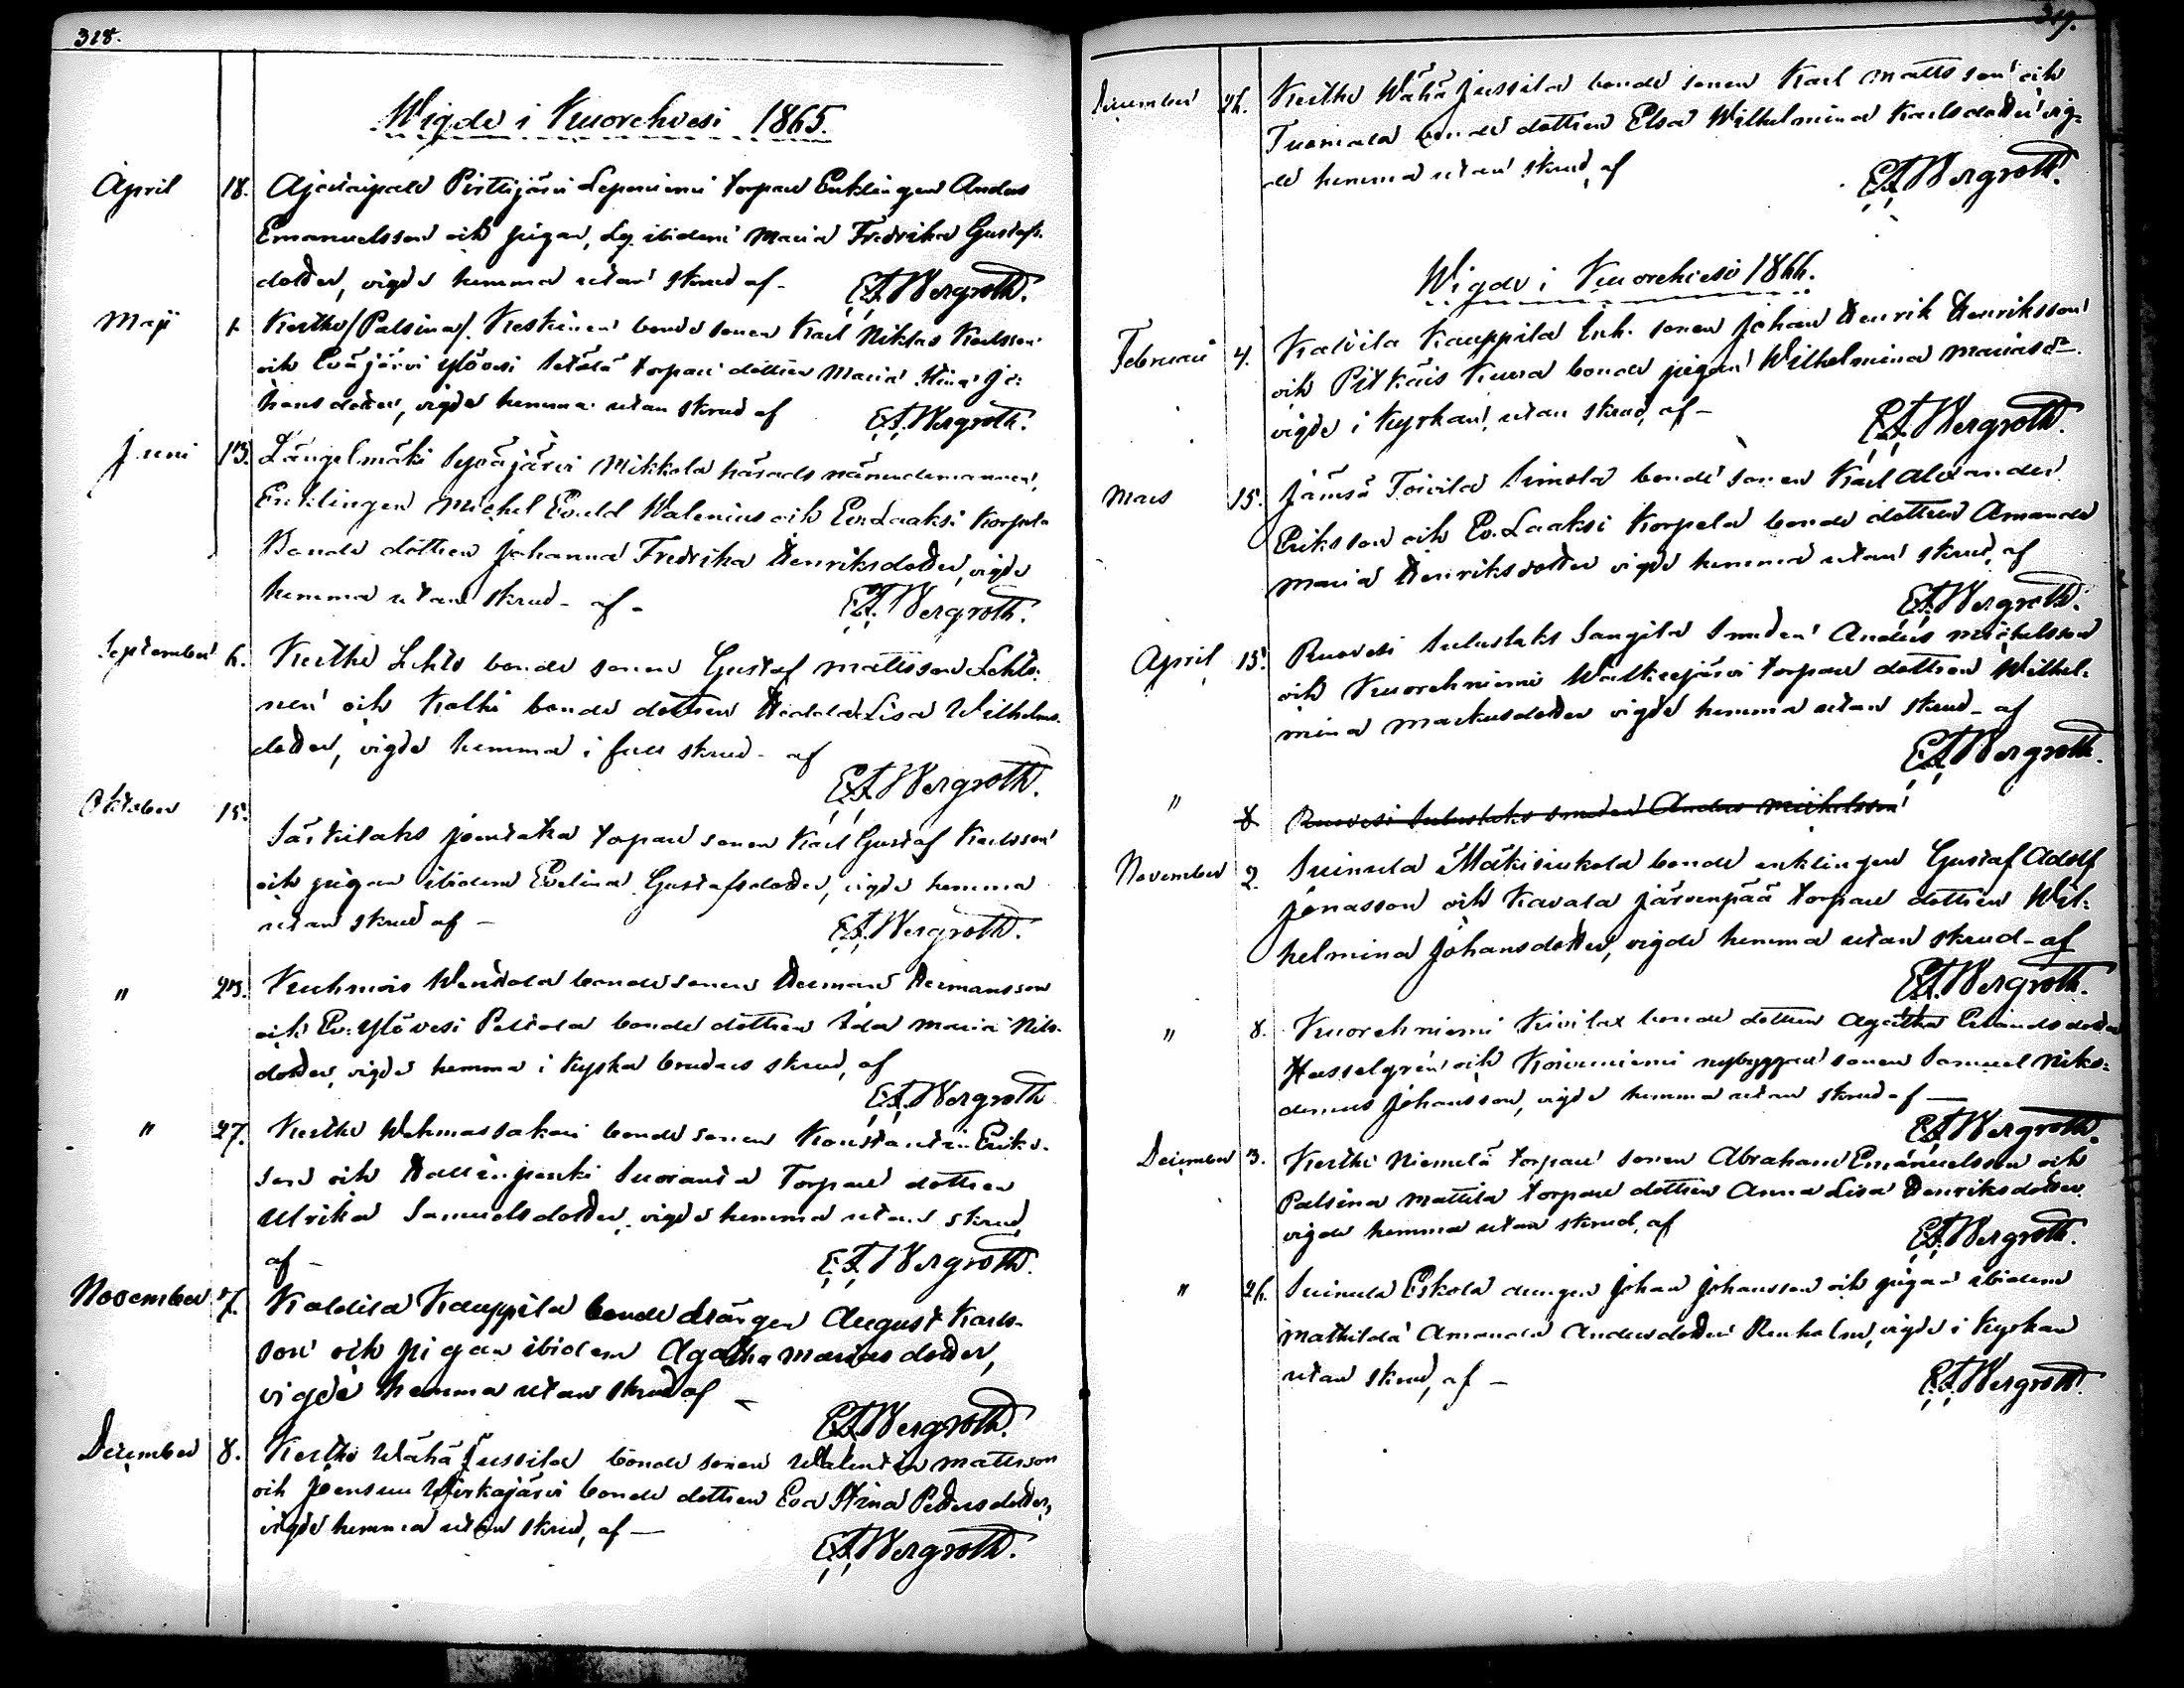 318.
Wigde i Kuorehvesi 1865.
April 18. Ajostaipale Pirttijärvi Leponiemi torpare Enklingen Anders
Emanuelsson och pigan, Lg. ibidem Maria Fredrika Gustafs-
dotter, vigde hemma utan skrud af - E.A. Bergroth.
Maji 1. Keitho /Palsina/. Keskinen bonde sonen Karl Niklas Karlsson
och Eväjärvi Ylövesi Setälä torpare dottren Maria Stina Jo-
hansdotter, vigde hemma utan skrud af E.A. Bergroth.
Juni 13. Längelmäki Syväjärvi Mikkola härads nämndemannen,
Enklingen Michel Evald Walenius och Ev. Laaksi Korpela
Bonde dottren Johanna Fredrika Henriksdotter, vigde
hemma utan skrud - af - E.A. Bergroth.
September 6. Keitho Lehto bonde sonen Gustaf Mattsson Lehto-
nen och Kolhi bonde dottren Hedda Lisa Wilhelms-
dotter, vigde hemma i full skrud - af
E.A. Bergroth.
Oktober 15.
Särkilaks torpare sonen Karl Gustaf Karlsson
och pigan ibidem Evelina Gustafsdotter, vigde hemma
utan skrud af - E.A. Bergroth.
" 23. Kuhmois Wentola bonde sonen Herman Hermansson
och Ev. Ylövesi Peltola bonde dottren Ida Maria Nils-
dotter, vigde hemma i kyrko brudens skrud, af
E.A. Bergroth
" 27. Keitho Wehmassakari bonde sonen Konstantin Eriks-
son och Hallinpenki Suoranta Torpare dottren
Ulrika Samuelsdotter, vigde hemma utan skrud
af - E.A. Bergroth.
November 7. Kalvila Kauppila bonde drängen August Karls-
son och pigan ibidem Agatha Mariasdotter,
vigde hemma utan skrud af -
E.A. Bergroth.
December 8. Keitho Wähä Jussila bonde sonen Walentin Mattsson
och Joensuu Wirkajärvi bonde dottren Eva Stina Pettersdotter,
vigde hemma utan skrud, af -
E.A. Bergroth.
319.
December 26. Keitho Wähä Jussila bonde sonen Karl Mattsson och
Tuomala bonde dottren Elsa Wilhelmina Karlsdotter vig-
de hemma utan skrud, af
E.A. Bergroth.
Wigde i Kuorehvesi 1866.
Februari 4. Kalvila Kauppila Inh. sonen Johan Henrik Henriksson
och Pitkäis Kuura bonde pigan Wilhelmina Mariasdr.
vigde i kyrkan, utan skrud, af -
E.A. Bergroth.
Mars 15. Jämsä Toivila Simola bonde sonen Karl Alexander
Eriksson och Ev. Laaksi Korpela bonde dottren Amanda
Maria Henriksdotter vigde hemma utan skrud, af
E.A. Bergroth.
April 15. Ruovesi Suluslaks Sangila Smeden Anders Michelsson
och Kuorehniemi Walkeejärvi torpare dottren Wilhel-
mina Markusdotter vigde hemma utan skrud - af
E.A. Bergroth.
" 8 Ruovesi Suluslaks smeden Anders Michelsson
November 2. Suinula Mäkisiukola bonde enklingen Gustaf Adolf
Jonasson och Kavala Järvenpää torpare dottren Wil-
helmina Johansdotter, vigde hemma utan skrud - af
E.A. Bergroth.
" 8. Kuorehniemi Kivilax bonde dottren Agatha Erlandsdotter
Hasselgrén och Koivuniemi nybyggare sonen Samuel Niko-
demus Johansson, vigde hemma utan skrud af -
E.A. Bergroth.
December 3. Keitho Niemelä torpare sonen Abraham Emanuelsson och
Palsina Mattila torpare dottren Anna Lisa Henriksdotter
vigde hemma utan skrud, af
E.A. Bergroth.
" 26. Suinula Eskola drengen Johan Johansson och pigan ibidem
Mathilda Amanda Andersdotter Renholm, vigde i kyrkan
utan skrud, af -
E.A. Bergroth.